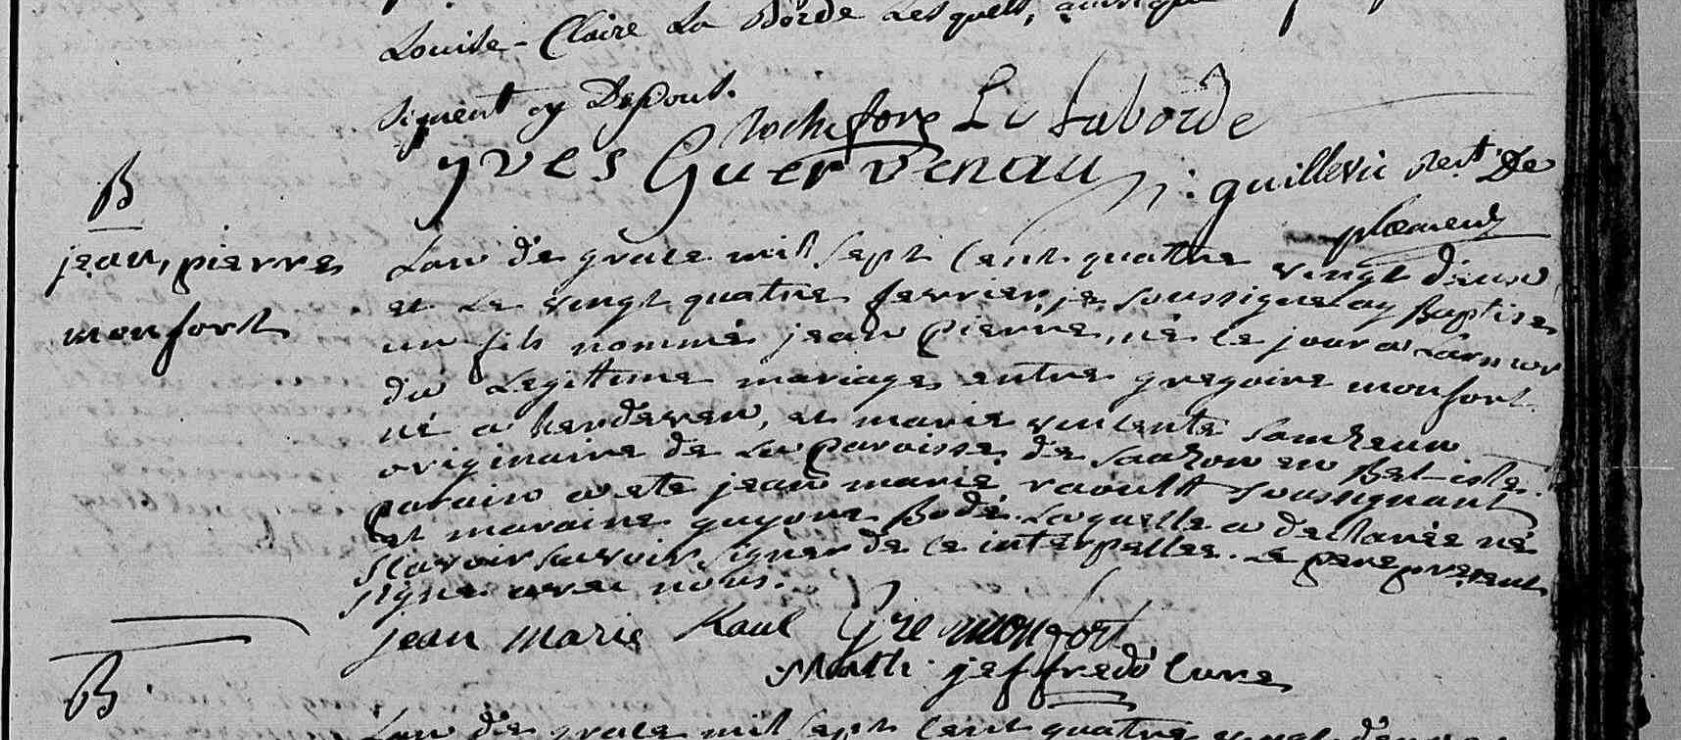 Louise-Claire La Borde Lesquels,
signent cy Depout.
Rochefort Le Laborde
yves Guervenau J: guillevic Rect. De
ploemeur
B
jean, pierre
monfort
Lan de grace mil sept cent quatre vingt deux
et le vingt quatre fevrier, je soussigne ay Baptise
un fils nommé jean pierre, né le jour a Larmor
du Legitime mariage entre gregoire monfort
né a kerderen, et marie vincente Samzun
originaire de La paroisse de Sauzon en Bel-isle.
parain a ete jean marie raoult soussignant
et maraine guyone Bodé. Laquelle a declarée ne
scavoir signer de ce interpellee. Le pere present
signe avec nous.
jean marie Raul Gre monfort
Math. jeffredo Cure
B
Lan de grace mil sept cent quatre vingt deux